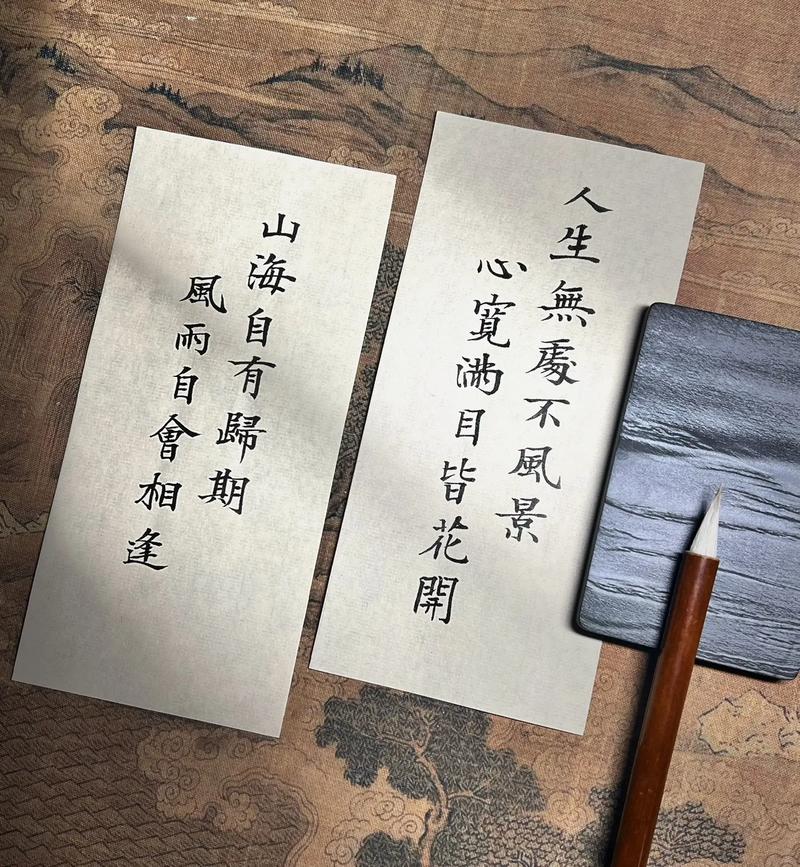 人生無處不風景
心寬滿目皆花開
山海自有歸期
風雨自會相逢